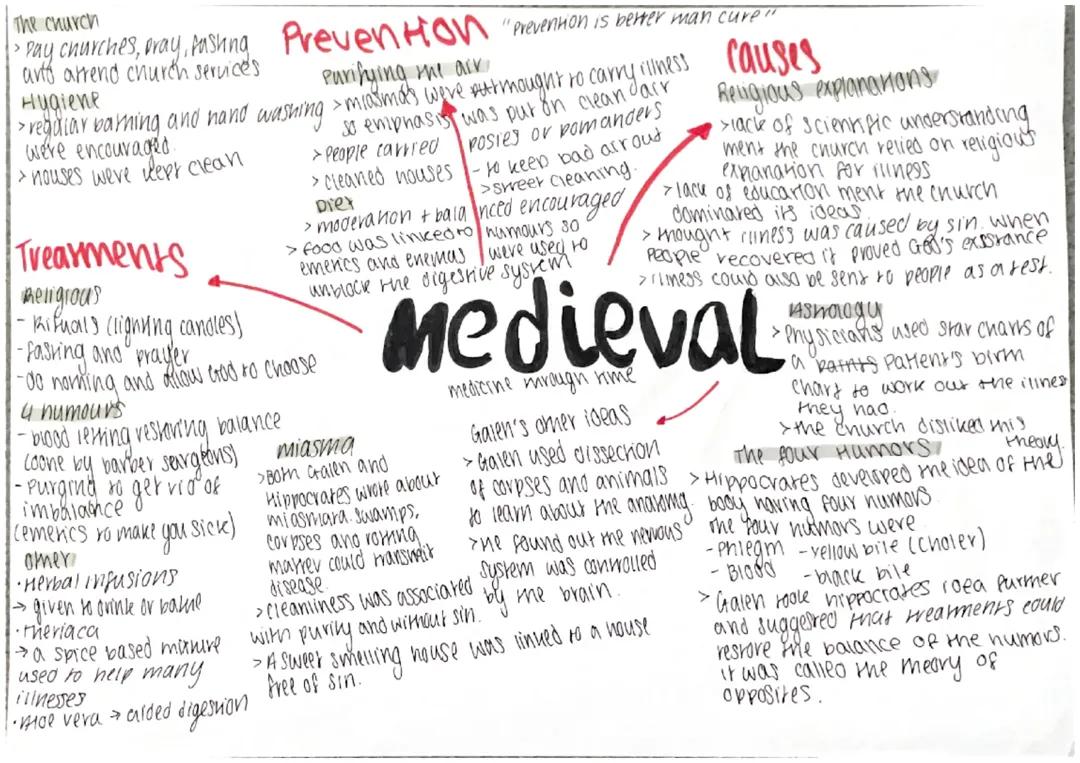 The church
> Pay churches, pray, fasting
and attend church services
Hygiene
> regular bathing and hand washing
were encouraged.
> houses were kept clean
Prevention
"Prevention is better than cure"
Purifying the air
> miasmas were thought to carry illness
so emphasis was put on clean air
> People carried posies or pomanders
- to keep bad air out
> cleaned houses
> street cleaning.
Diet
> moderation + balanced encouraged
> food was linked to humours so
emetics and enemas were used to
unblock the digestive system
causes
Religious explanations
> lack of scientific understanding
ment the church relied on religious
explanation for illness
> lack of education ment the church
dominated its ideas
> thought illness was caused by sin. when
people recovered it proved God's existance
> illness could also be sent to people as a test.
Treatments
Religious
- Rituals (lighting candles)
- fasting and prayer
- do nothing and allow God to choose
4 humours
- blood letting restoring balance
(done by barber seargons)
- Purging to get rid of
imbalance
(emetics to make you sick)
other
· Herbal infusions
→ given to drink or bathe
· theriaca
→ a spice based mixture
used to help many
illnesses
· Aloe vera → aided digestion
medieval
medicine through time
miasma
> Both Galen and
Hippocrates wrote about
miasmara. swamps,
corpses and rotting
matter could transmit
disease
> cleanliness was associated
with purity and without sin.
> A sweet smelling house was linked to a house
free of sin.
Galen's other ideas
> Galen used dissection
of corpses and animals
to learn about the anatomy.
> He found out the nervous
system was controlled
by the brain.
Astrology
> Physicians used star charts of
a patients patient's birth
chart to work out the illness
they had.
> the church disliked this
theory.
The four Humors
> Hippocrates developed the idea of the
body having four humors.
the four humors were
- Phlegm - yellow bile (choler)
- Blood - black bile
> Galen took hippocrates idea further
and suggested that treatments could
restore the balance of the humors.
it was called the theory of
opposites.